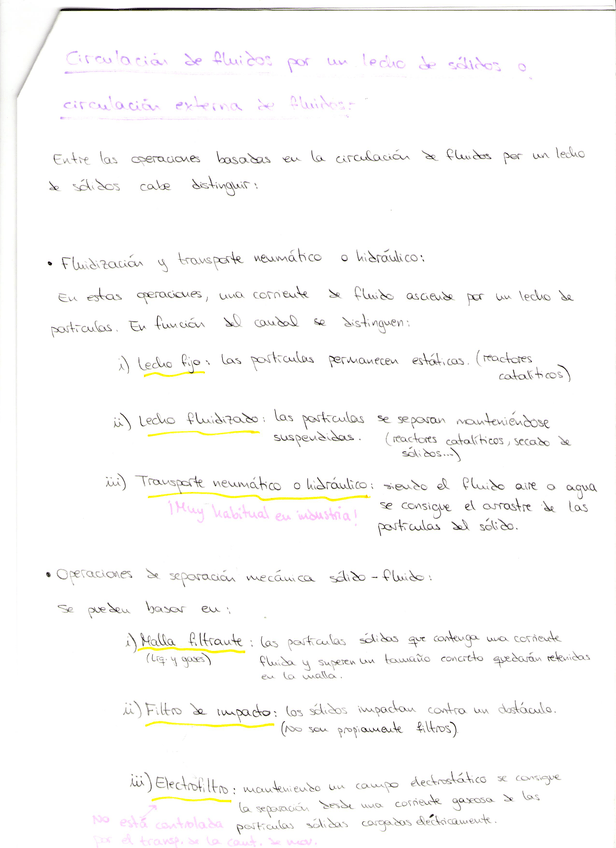 Circulación de fluidos por un lecho de sólidos o
circulación externa de fluidos:
Entre las operaciones basadas en la circulación de fluidos por un lecho
de sólidos cabe distinguir:
• Fluidización y transporte neumático o hidráulico:
En estas operaciones, una corriente de fluido asciende por un lecho de
partículas. En función del caudal se distinguen:
i) Lecho fijo: las partículas permanecen estáticas. (reactores
catalíticos)
ii) Lecho fluidizado: las partículas se separan manteniéndose
suspendidas. (reactores catalíticos, secado de
sólidos...)
iii) Transporte neumático o hidráulico: siendo el fluido aire o agua
se consigue el arrastre de las
¡Muy habitual en industria!
partículas del sólido.
• Operaciones de separación mecánica sólido-fluido:
Se pueden basar en:
i) Malla filtrante: las partículas sólidas que contenga una corriente
(Liq. y gases) fluida y superen un tamaño concreto quedarán retenidas
en la malla.
ii) Filtro de impacto: los sólidos impactan contra un obstáculo.
(No son propiamente filtros)
iii) Electrofiltro: manteniendo un campo electrostático se consigue
la separación desde una corriente gaseosa de las
No está controlada partículas sólidas cargadas eléctricamente.
por el transp. de la cant. de mov.